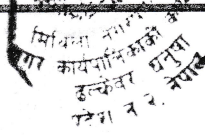 मिथिला नगर
नगर कार्यपालिकाको
ढल्केवर धनुषा
प्रदेश नं २, नेपाल